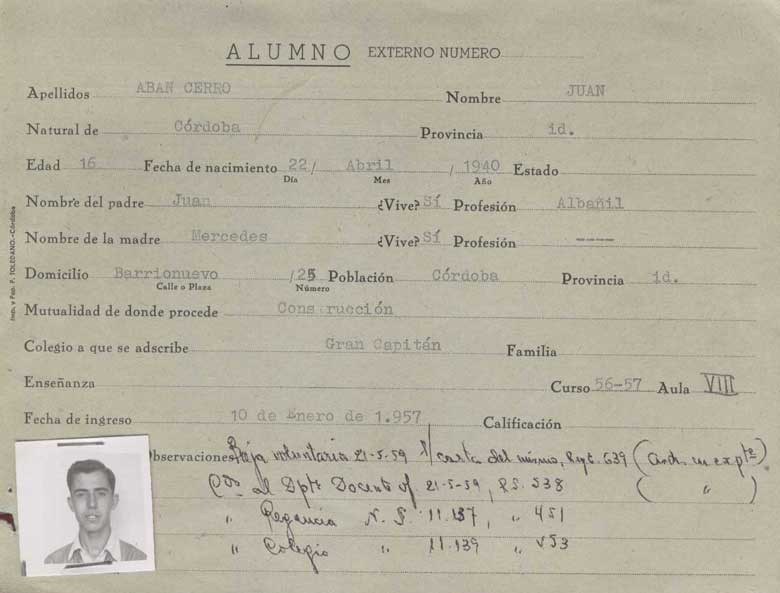 ALUMNO EXTERNO NUMERO
Apellidos ABAN CERRO Nombre JUAN
Natural de Córdoba Provincia id.
Edad 16 Fecha de nacimiento 22 / Abril / 1940 Estado
Día Mes Año
Nombre del padre Juan ¿Vive? Sí Profesión Albañil
Nombre de la madre Mercedes ¿Vive? Sí Profesión ----
Domicilio Barrionuevo /25 Población Córdoba Provincia id.
Calle o Plaza Número
Mutualidad de donde procede Construcción
Colegio a que se adscribe Gran Capitán Familia
Enseñanza Curso 56-57 Aula VIII
Fecha de ingreso 10 de Enero de 1.957 Calificación
Observaciones Baja voluntaria 21-5-59 s/ carta del mismo, 639 (
al Dpto Docente 21-5-59, 538 ( " )
" Regencia 11.137, " 451
" Colegio " 11.139 " 453
Imp. y Pap. P. TOLEDANO.-Córdoba